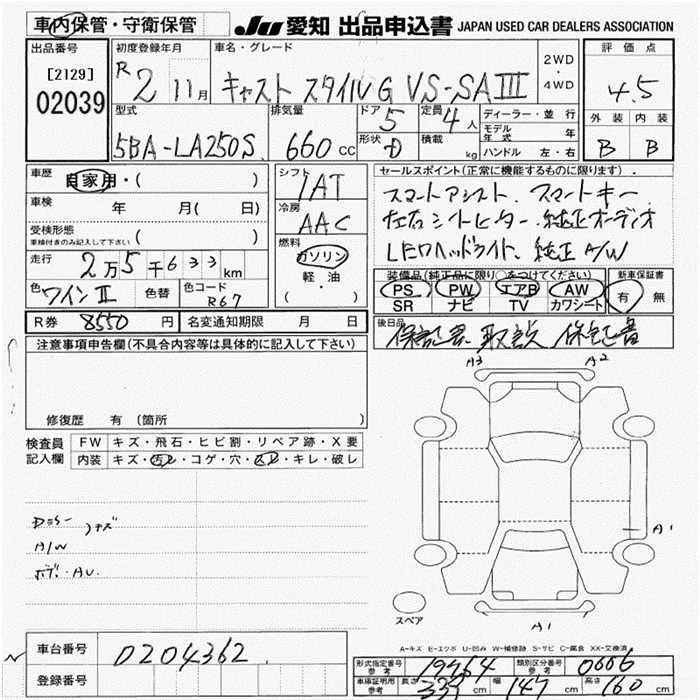 車内保管・守衛保管 JU 愛知 出品申込書 JAPAN USED CAR DEALERS ASSOCIATION
出品番号 初度登録年月 車名・グレード 評価点
[2129] R2 11月 キャスト スタイルG VS-SAⅢ 2WD・4WD 4.5
02039 型式 排気量 ドア 5 定員 4人 ディーラー・並行 外装 内装
5BA-LA250S 660cc 形状 D 積載 kg モデル年式 年 B B
ハンドル 左・右
車歴 自家用・( ) シフト セールスポイント(正常に機能するものに限ります).
IAT スマートアシスト. スマートキー.
車検 年 月( 日) 冷房 左右シートヒーター. 純正オーディオ
受検形態 ( ) AAC LEDヘッドライト. 純正A/W
車検付きのみ記入して下さい 燃料
走行 2万5千633km ガソリン 装備品(純正品に限り○をつけてください) 新車保証書
軽・油 PS PW エアB AW 有・無
色 ワインⅡ 色替 色コード R67 ( ) SR ナビ TV カワシート
R券 8550円 名変通知期限 月 日 後日品
保証書. 取説 保証書
注意事項申告欄(不具合内容等は具体的に記入して下さい)
A3 A2
修復歴 有 (箇所 )
検査員 FW キズ・飛石・ヒビ割・リペア跡・X要
記入欄 内装 キズ・汚レ・コゲ・穴・スレ・キレ・破レ
A1
A/W
スペア A1
A-キズ E-エクボ U-凹み W-補修跡 S-サビ C-腐食 XX-交換済
車台番号 0204362
登録番号
形式指定番号 参考 19764 類別区分番号 参考 0006
車庫証明用 参考 長さ 339cm 幅 147cm 高さ 160cm